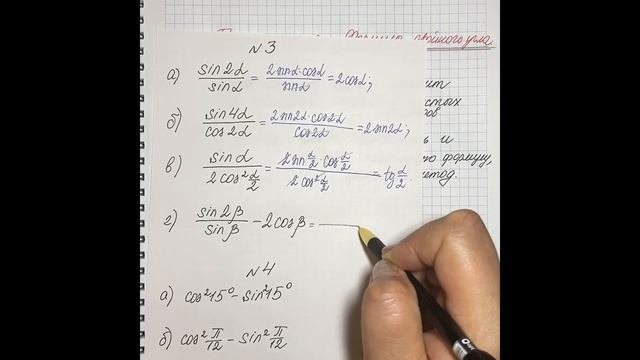 двойного угла.
N 3
а) sin2α/sinα = 2sinα·cosα/sinα = 2cosα;
б) sin4α/cos2α = 2sin2α·cos2α/cos2α = 2sin2α;
в) sinα/2cos²α/2 = 2sin α/2 · cos α/2/2cos² α/2 = tg α/2.
г) sin2β/sinβ − 2cosβ =
N 4
а) cos²15° − sin²15°
б) cos² π/12 − sin² π/12
стых
и
формулу,